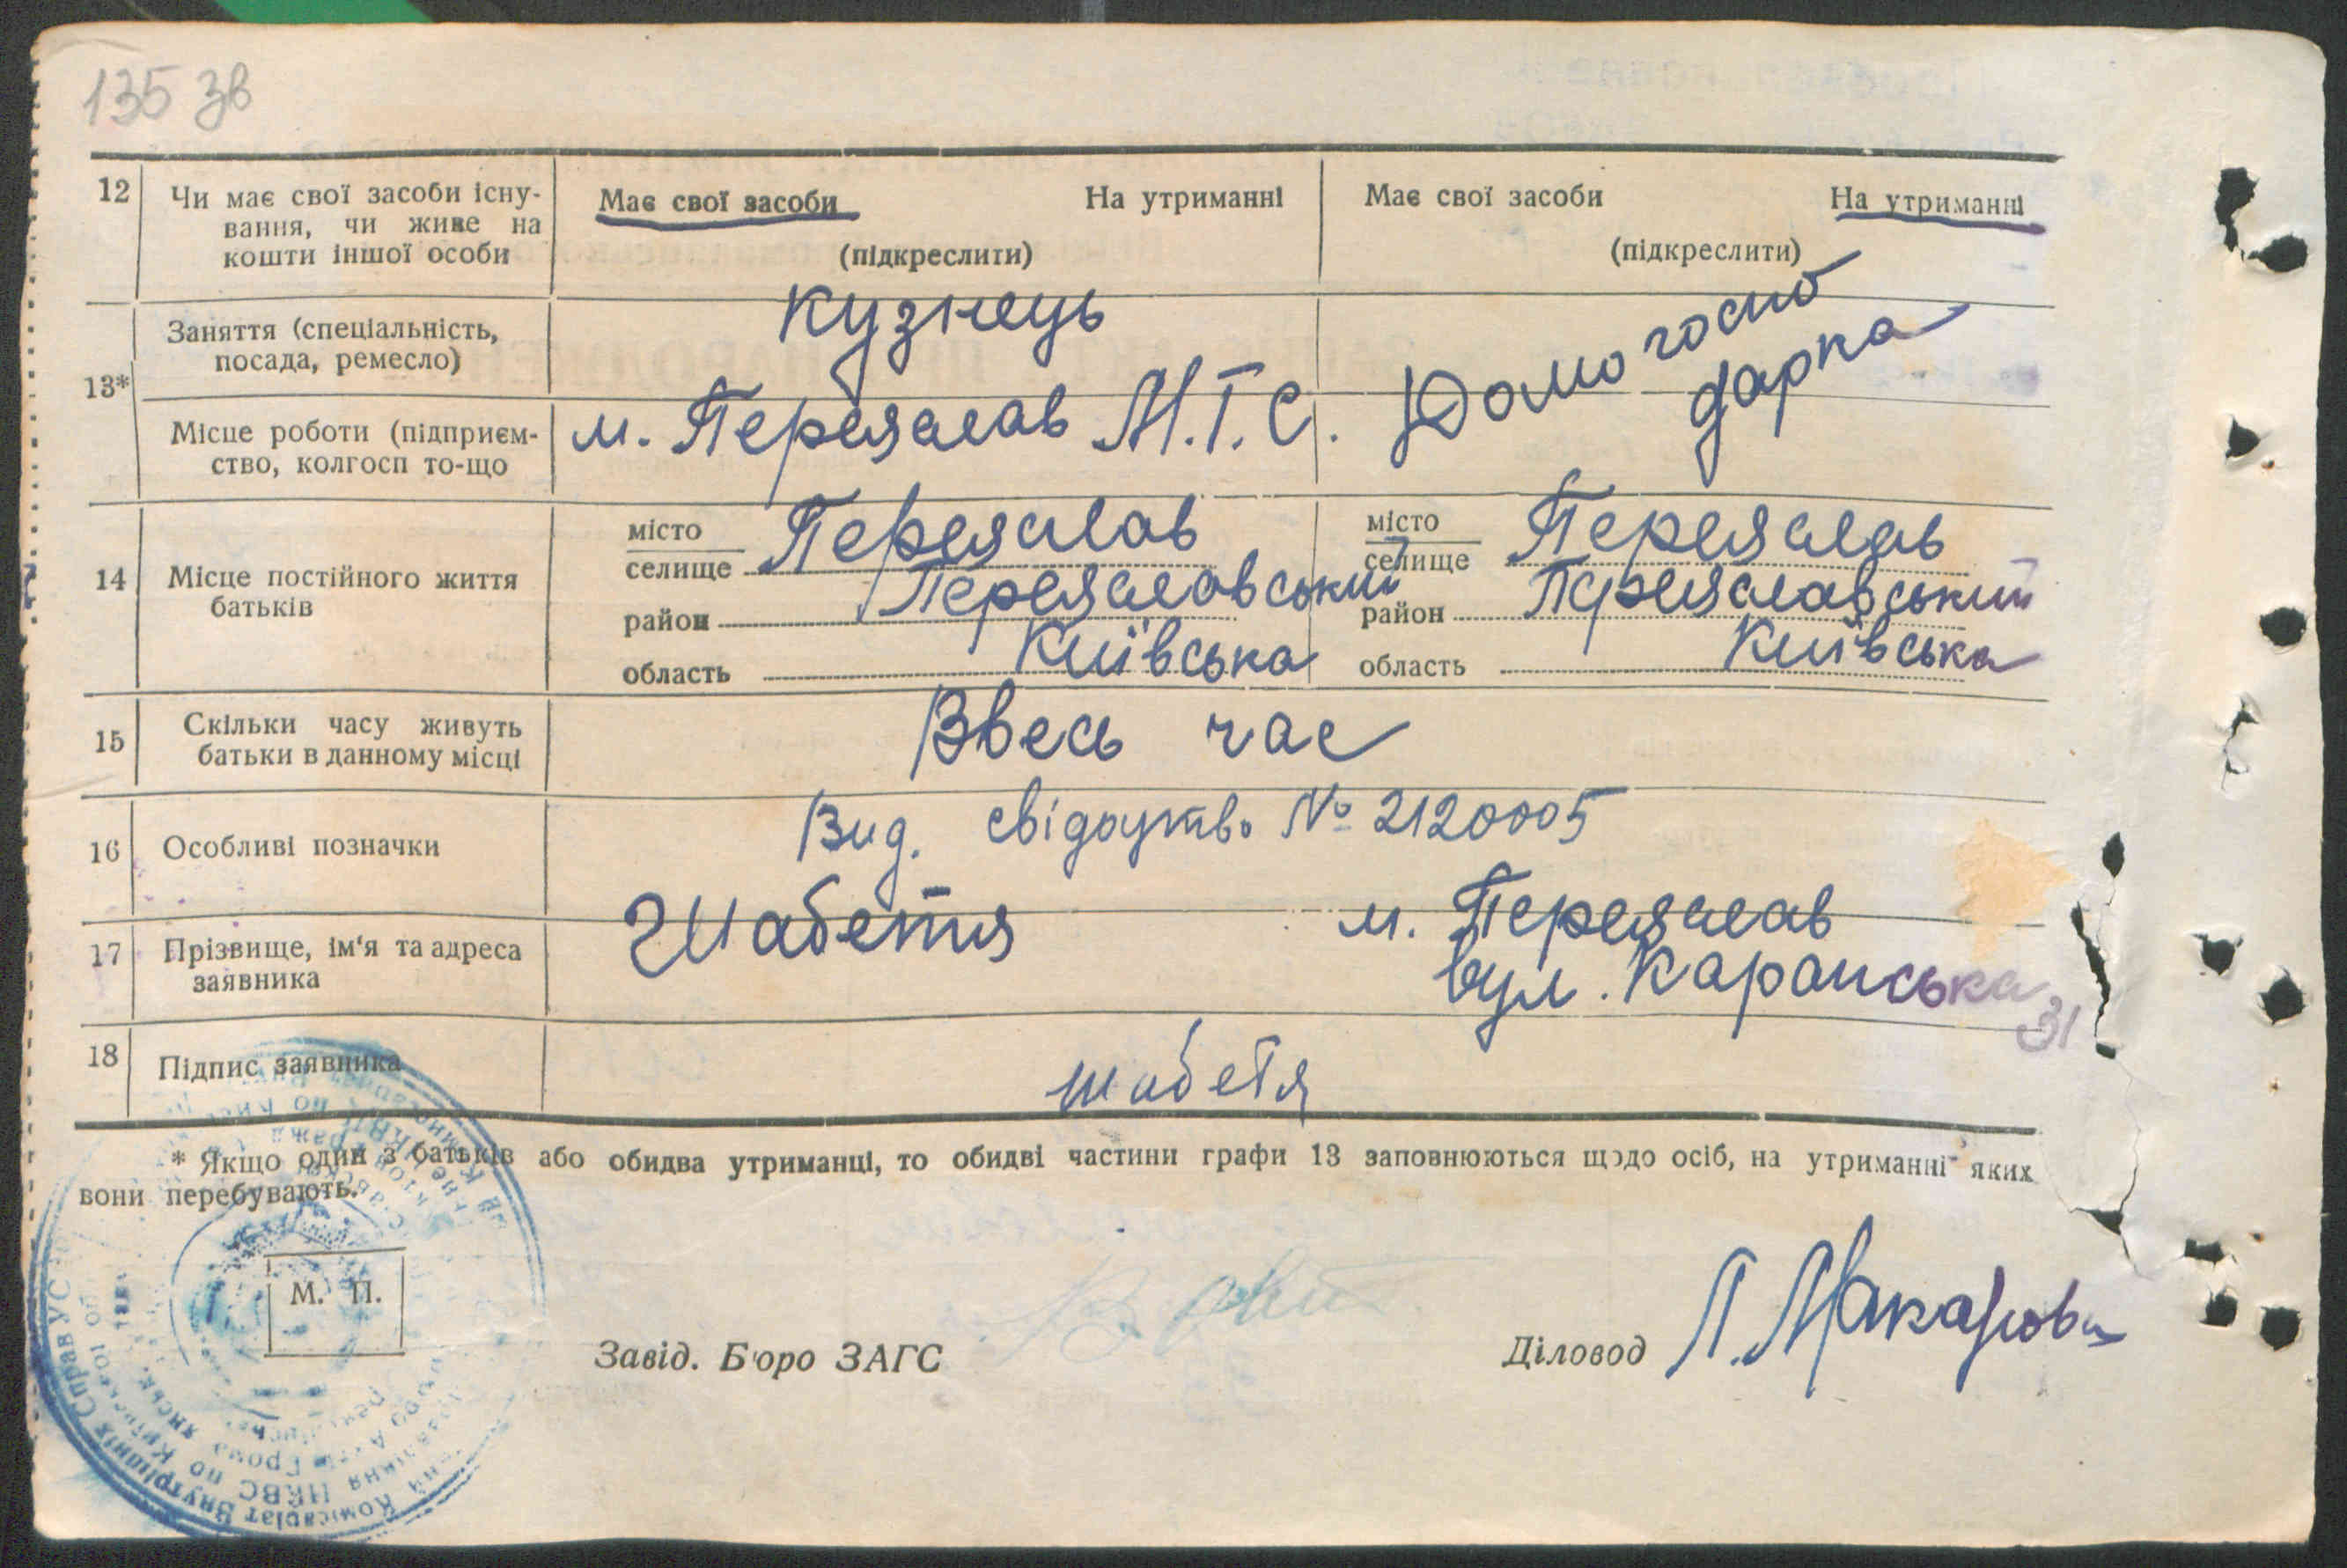 135 зв
12 Чи має свої засоби існу- Має свої засоби На утриманні Має свої засоби На утриманні
вання, чи живе на
кошти іншої особи (підкреслити) (підкреслити)
13* Заняття (спеціальність, Кузнець Домогоспо
посада, ремесло) дарка
Місце роботи (підприєм- м. Переяслав М.Т.С.
ство, колгосп то-що
14 Місце постійного життя місто Переяслав місто Переяслав
батьків селище селище
район Переяславський район Переяславський
область Київська область Київська
15 Скільки часу живуть Ввесь час
батьки в данному місці
16 Особливі позначки Вид. свідоцтво № 2120005
17 Прізвище, ім'я та адреса Шабетя м. Переяслав
заявника вул. Каранська 31
18 Підпис заявника шабетя
* Якщо один з батьків або обидва утриманці, то обидві частини графи 13 заповнюються щодо осіб, на утриманні яких
вони перебувають.
М. П.
Завід. Бюро ЗАГС Діловод Л. Макарова
Комісаріат Внутрішніх Справ УС
НКВС по Київській